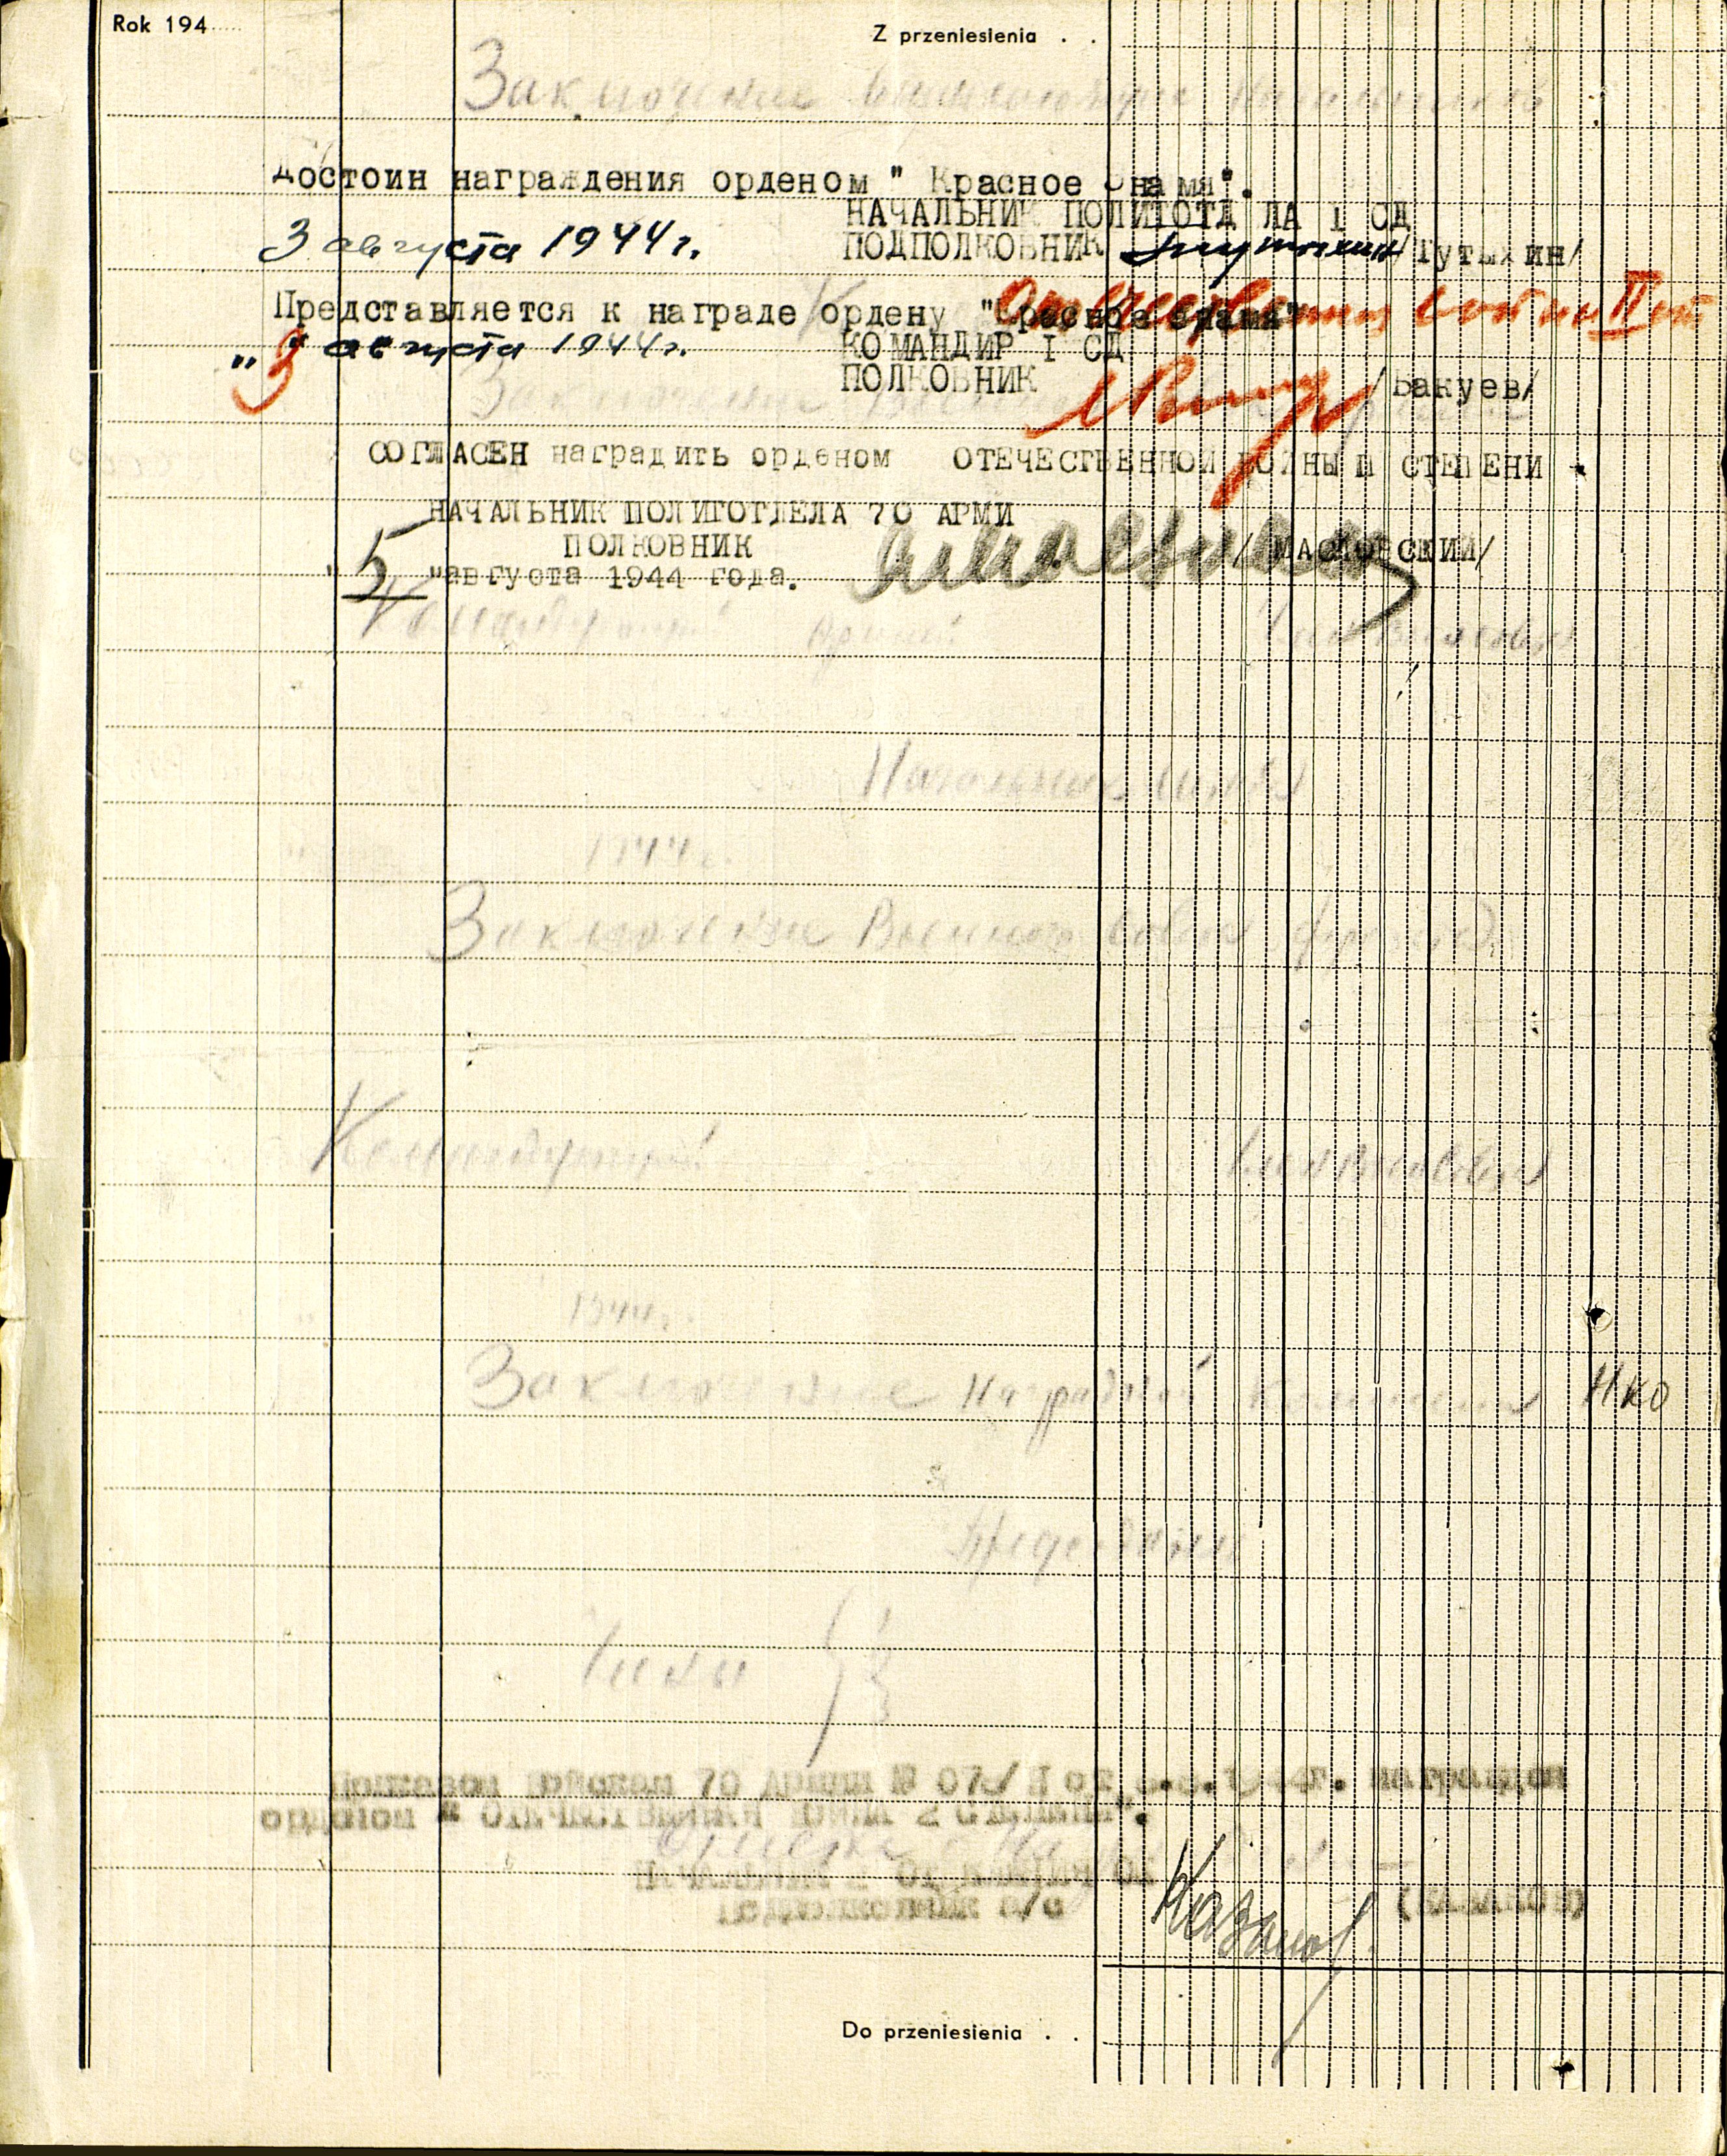 Rok 194
Z przeniesienia . .
Заключение вышестоящих Начальников
достоин награждения орденом " Красное Знамя".
НАЧАЛЬНИК ПОЛИТОТДЕЛА 1 СД
3 августа 1944 г. ПОДПОЛКОВНИК Тутыхин/
Представляется к награде ордену "Красное Знамя" Отечественная война II ст
"3" августа 1944 г. КОМАНДИР 1 СД
ПОЛКОВНИК /Бакуев/
Заключение Военного
СОГЛАСЕН наградить орденом ОТЕЧЕСТВЕННОЙ ВОЙНЫ II СТЕПЕНИ
НАЧАЛЬНИК ПОЛИТОТДЕЛА 70 АРМИ
ПОЛКОВНИК /МАСЛОВСКИЙ/
"5" августа 1944 года.
Командующий Армией Член Военсовета
Начальник
1944 г.
Заключение Военного Совета фронта
Командующий Член Военсовета
" 1944 г.
Заключение Наградной комиссии НКО
Председатель
Члены
Приказом Войскам 70 Армии № 07 /Н от 1944г. награжден
орденом " ОТЕЧЕСТВЕННАЯ ВОЙНА 2 СТЕПЕНИ".
Отметка
Подполковник а/с Казаков (КАЗАКОВ)
Do przeniesienia . .